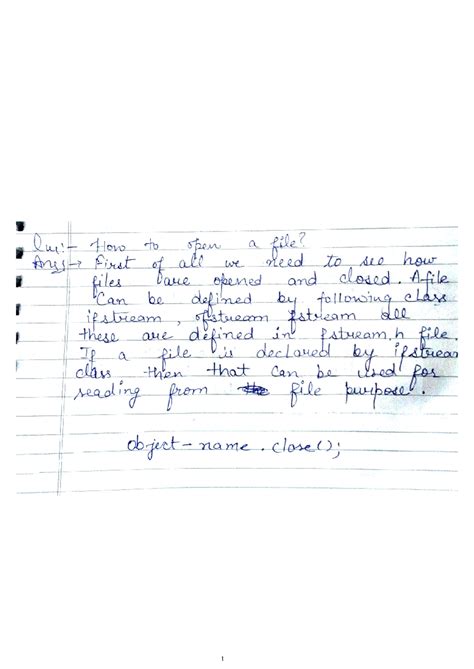 Que:- How to open a file?
Ans:→ First of all we need to see how
files are opened and closed. A file
Can be defined by following class
ifstream, ofstream fstream all
these are defined in fstream.h file.
If a file is declared by ifstream
class then that can be used for
reading from the file purpose.
object-name.close();
1